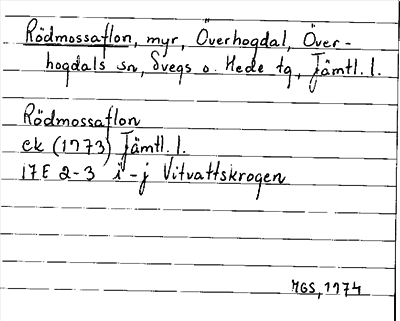 Rödmossaflon, myr, Överhogdal, Över-
hogdals sn, Svegs o. Hede tg, Jämtl. l.
Rödmossaflon
ek (1973) Jämtl. l.
17E 2-3 i-j Vitvattskrogen
MGS, 1974